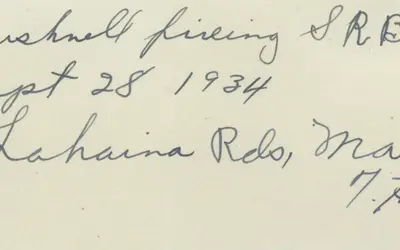 ushnell fireing SRB
pt 28 1934
Lahaina Rds, Ma
T.H